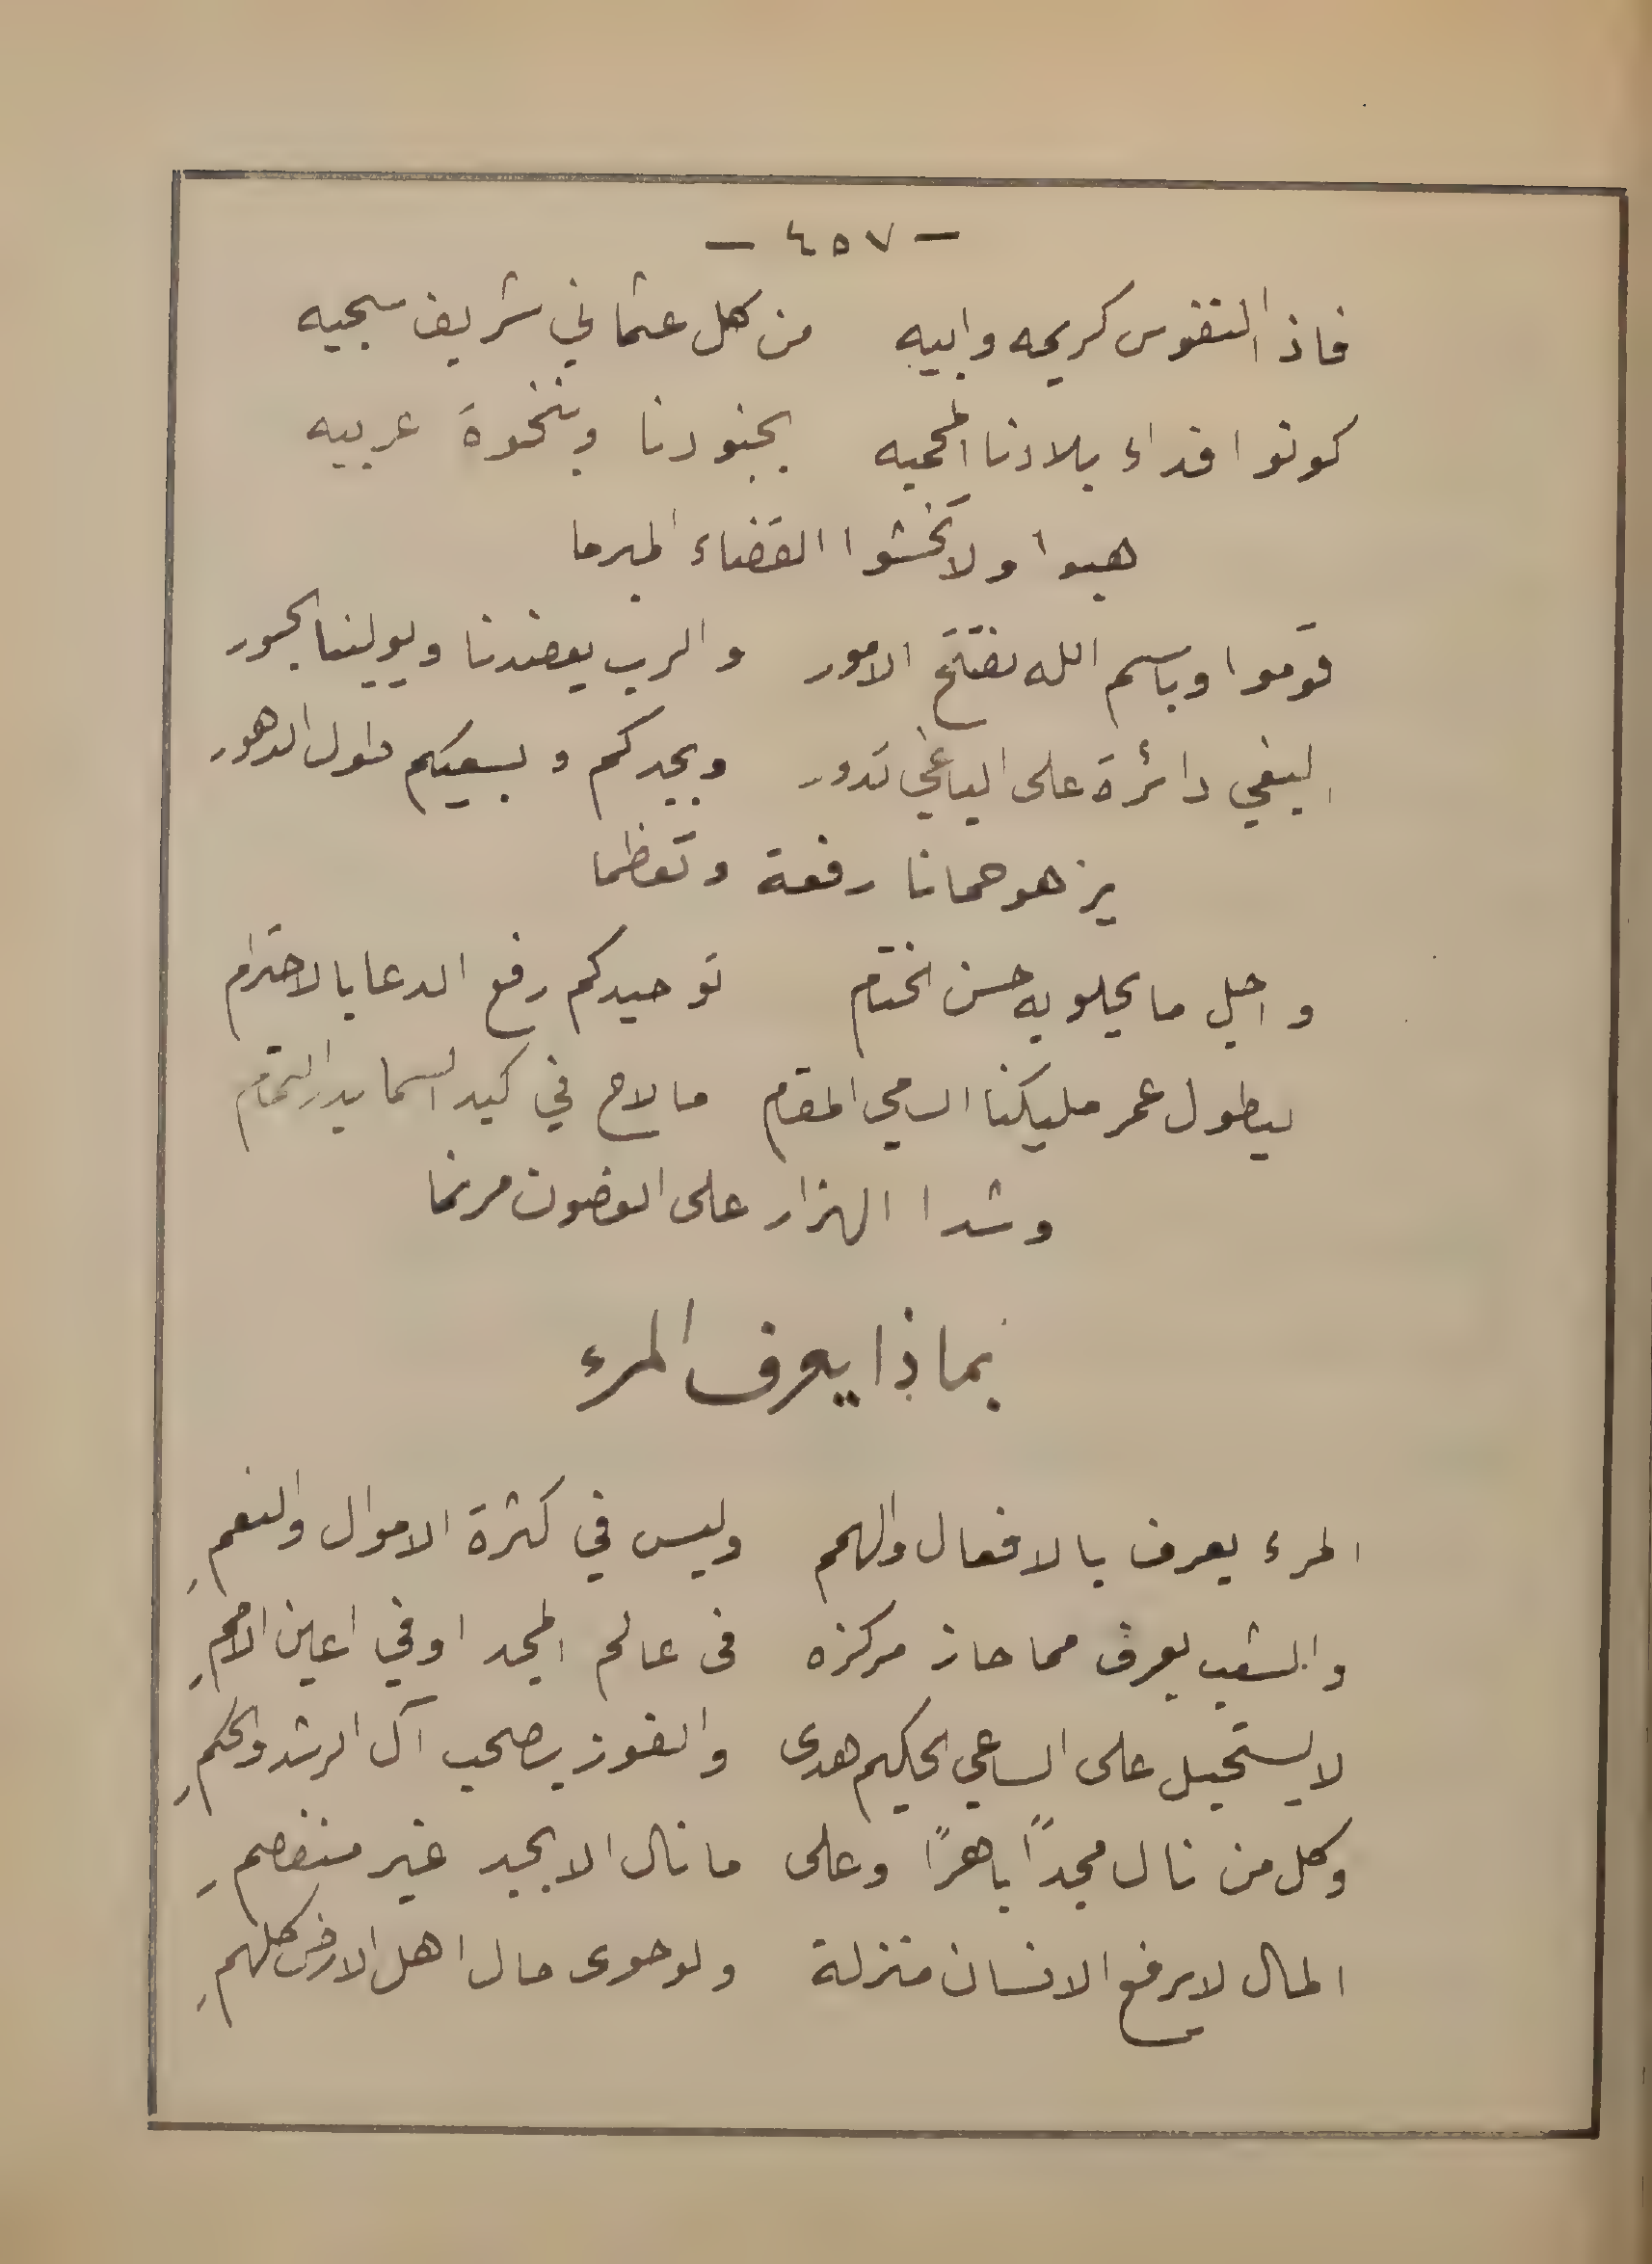 — ٤٥٧ —
فاذ النفوس كريمه وابيه من كل عثماني شريف سجيه
كونوا فداء بلادنا المحميه بجنودنا وبنخوة عربيه
هبوا ولا تخشوا القضاء المبرما
قوموا وباسم الله نفتتح الامور والرب يعضدنا ويولينا الحبور
البغي دائرة على الباغي تدور وبجدكم وبسعيكم طول الدهور
يزهو حمانا رفعة وتعظما
واجل ما يحلو به حسن الختام توحيدكم رفع الدعا بالاحترام
ليطول عمر مليكنا السامي المقام ما لاح في كبد السما بدر التمام
وشدا الهزار على الغصون مرنما
بماذا يعرف المرء
المرء يعرف بالافعال والهمم وليس في كثرة الاموال والنعمِ
والشعب يعرف مما حاز مركزه في عالم المجد او في اعين الاممِ
لا يستحيل على الساعي الحكيم هدى والفوز يصحب آل الرشد والحكمِ
وكل من نال مجدًا باهرًا وعلى ما نال الا بجد غير منفصمِ
المال لا يرفع الانسان منزلة ولو حوى مال اهل الارض كلهمِ